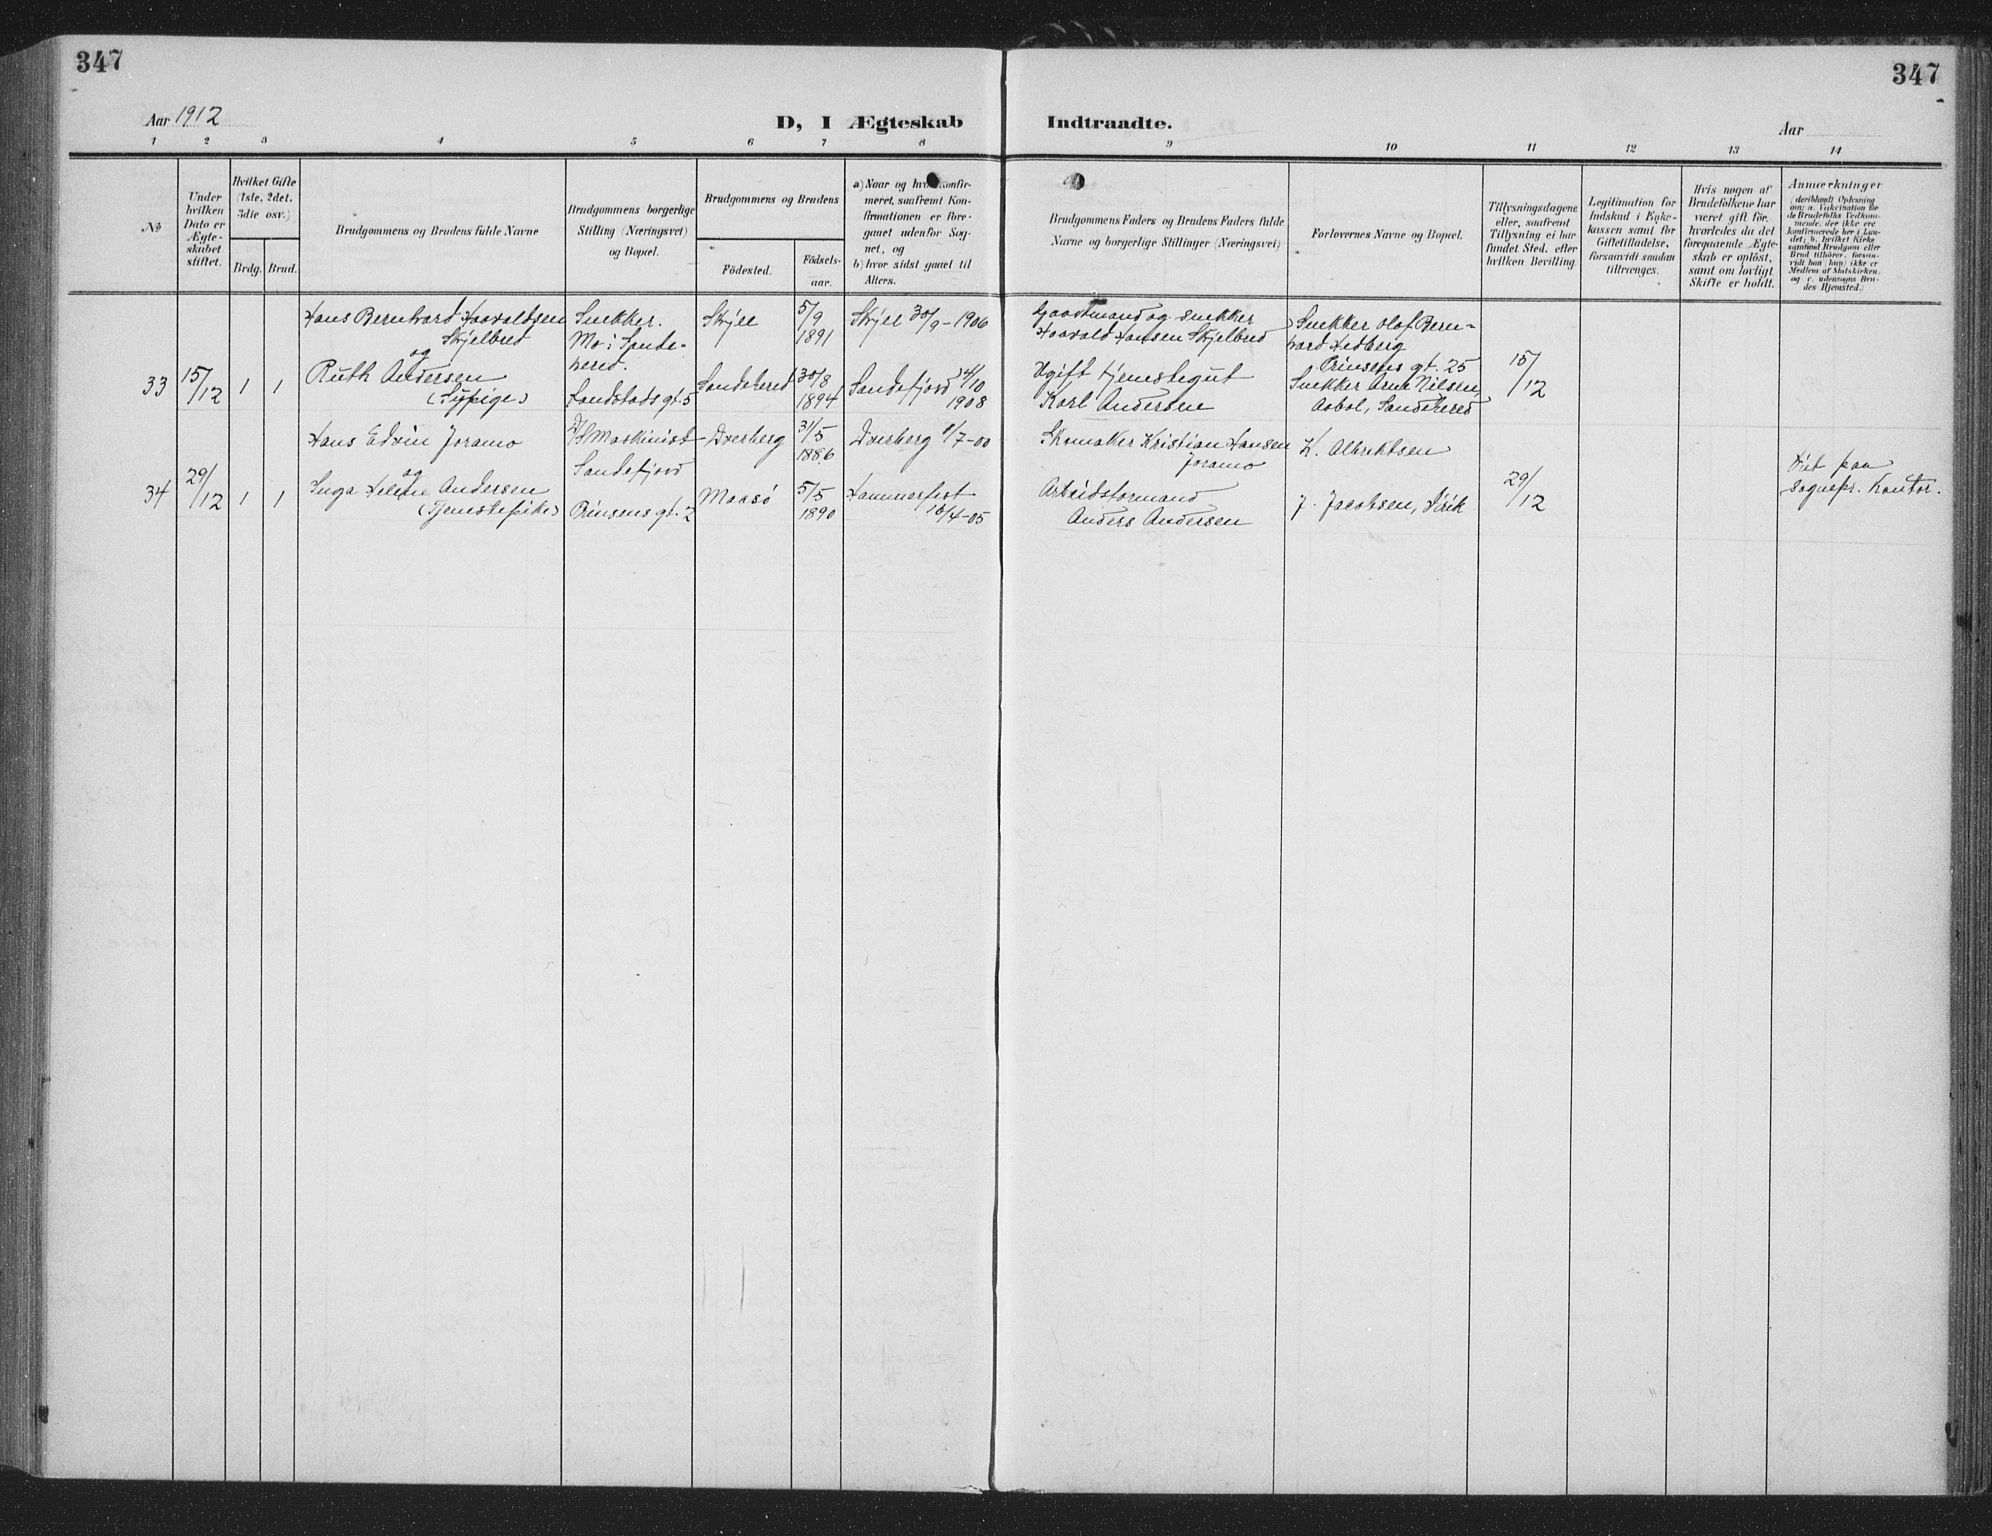 347
347
Aar 1912
D, I Ægteskab Indtraadte.
Aar
1 2 3 4 5 6 7 8 9 10 11 12 13 14
No
Under
hvilken
Dato er
Ægte-
skabet
stiftet.
Hvilket Gifte
(1ste, 2det,
3die osv.)
Brdg. Brud.
Brudgommens og Brudens fulde Navne
Brudgommens borgerlige
Stilling (Næringsvei)
og Bopæl.
Brudgommens og Brudens
Födested.
Födsels-
aar.
a) Naar og hvor konfir-
meret, saafremt Kon-
firmationen er fore-
gaaet udenfor Sog-
net, og
b) hvor sidst gaaet til
Alters.
Brudgommens Faders og Brudens Faders fulde
Navne og borgerlige Stillinger (Næringsvei)
Forlovernes Navne og Bopæl.
Tillysningsdagene
eller, saafremt
Tillysning ei har
fundet Sted, efter
hvilken Bevilling.
Legitimation for
Indskud i Enke-
kassen samt for
Giftetilladelse,
forsaavidt saadan
tiltrænges.
Hvis nogen af
Brudefolkene har
været gift för,
hvorledes da det
foregaaende Ægte-
skab er oplöst,
samt om lovligt
Skifte er holdt.
Anmærkninger
(deriblandt Oplysning
om: a. Vakcination for
de Brudefolks Vedkom-
mende, der ikke ere
konfirmerede her i Lan-
det; b. hvilket Kirke-
samfund Brudgom eller
Brud tilhörer, forsaa-
vidt han (hun) ikke er
Medlem af Statskirken,
og c. udensogns Bru-
des Hjemsted.)
33
15/12
1 1
Hans Bernhard Haavaldsen
Skjelbred
og
Ruth Andersen
(Sypige)
Snekker.
Mo i Sande-
hered.
Landstads gt. 5
Skjee
Sandehered
5/9
1891
30/8
1894
Skjee 30/9 - 1906
Sandefjord 4/10
1908
Gaardmand og snekker
Haavald Hansen Skjelbred
Ugift tjenestegut
Karl Andersen
Snekker Olof Bern-
hard Hedberg
Prinsens gt. 25
Snekker Arne Nilsen,
Aabol, Sandehered
15/12
34
29/12
1 1
Hans Edvin Joramo
og
Inga Helene Andersen
(Tjenestepike)
D/S Maskinist
Sandefjord
Prinsens gt. 2
Dverberg
Maasö
31/5
1886
5/5
1890
Dverberg 1/7-00
Hammerfest
16/4-05
Skomaker Kristian Hansen
Joramo
Arbeidsformand
Anders Andersen
K. Albrektsen
J. Jacobsen,
29/12
Viet paa
Sognepr. Kontor.